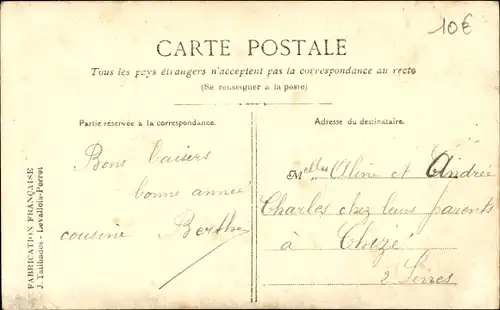 10€
CARTE POSTALE
Tous les pays étrangers n'acceptent pas la correspondance au recto
(Se renseigner à la poste)
Partie réservée à la correspondance.
Bons baisers
bonne année
cousine Berthe
Adresse du destinataire.
Melles Aline et Andrée
Charles chez leurs parents
à Chizé
2 Sèvres
FABRICATION FRANÇAISE
J. Tailhades - Levallois-Perret